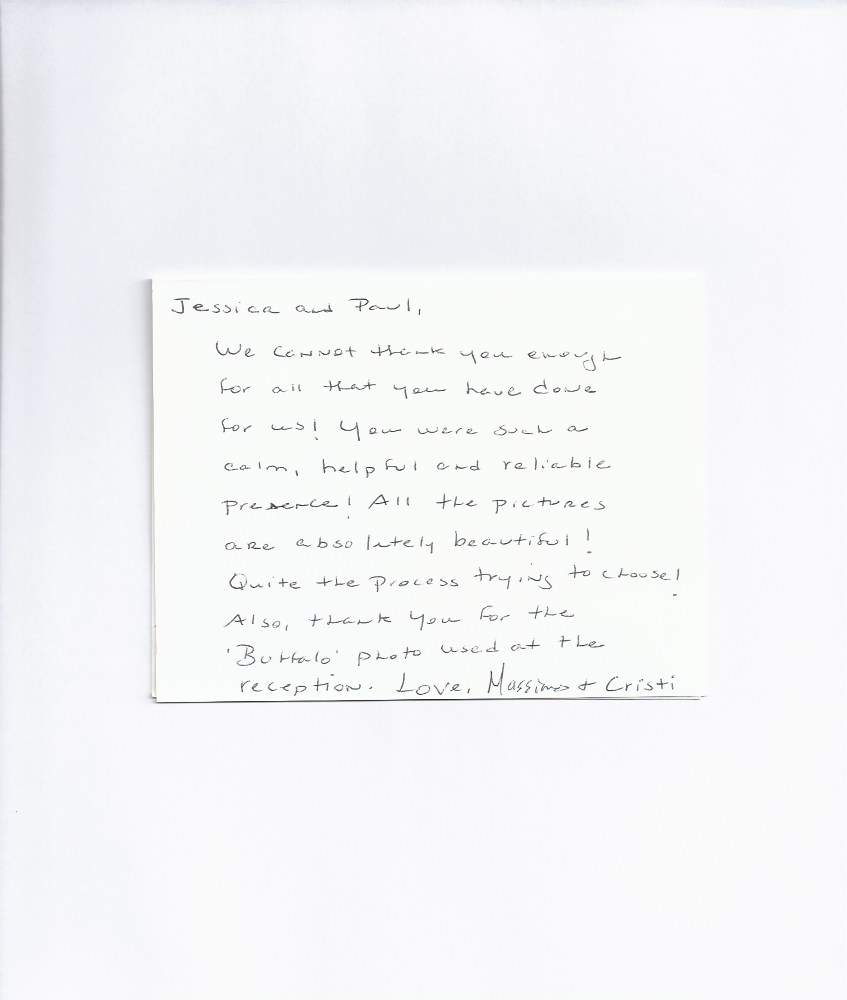 Jessica and Paul,
We cannot thank you enough
for all that you have done
for us! You were such a
calm, helpful and reliable
presence! All the pictures
are absolutely beautiful!
Quite the process trying to choose!
Also, thank you for the
'Buffalo' photo used at the
reception. Love, Massimo + Cristi